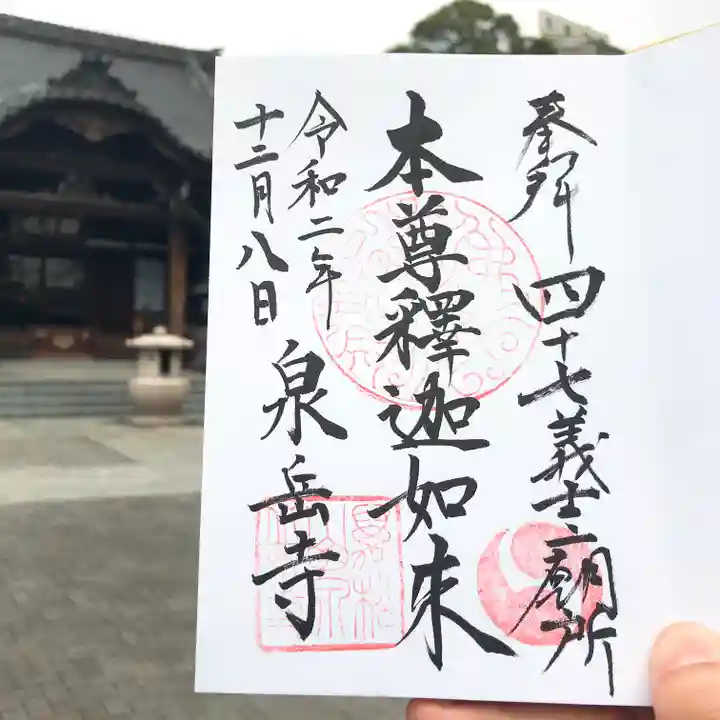 奉拝 四十七義士之廟所
本尊釋迦如来
令和二年
十二月八日
泉岳寺